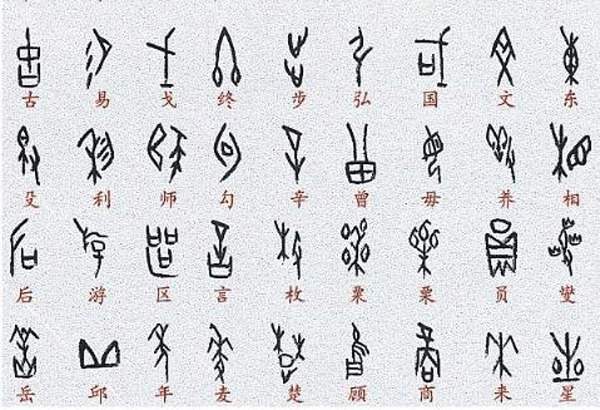 古 易 戈 终 步 弘 国 文 东
殳 利 师 勾 辛 曾 毋 养 相
后 游 区 言 枚 栗 粟 员 燮
岳 邱 年 麦 楚 顾 商 来 星